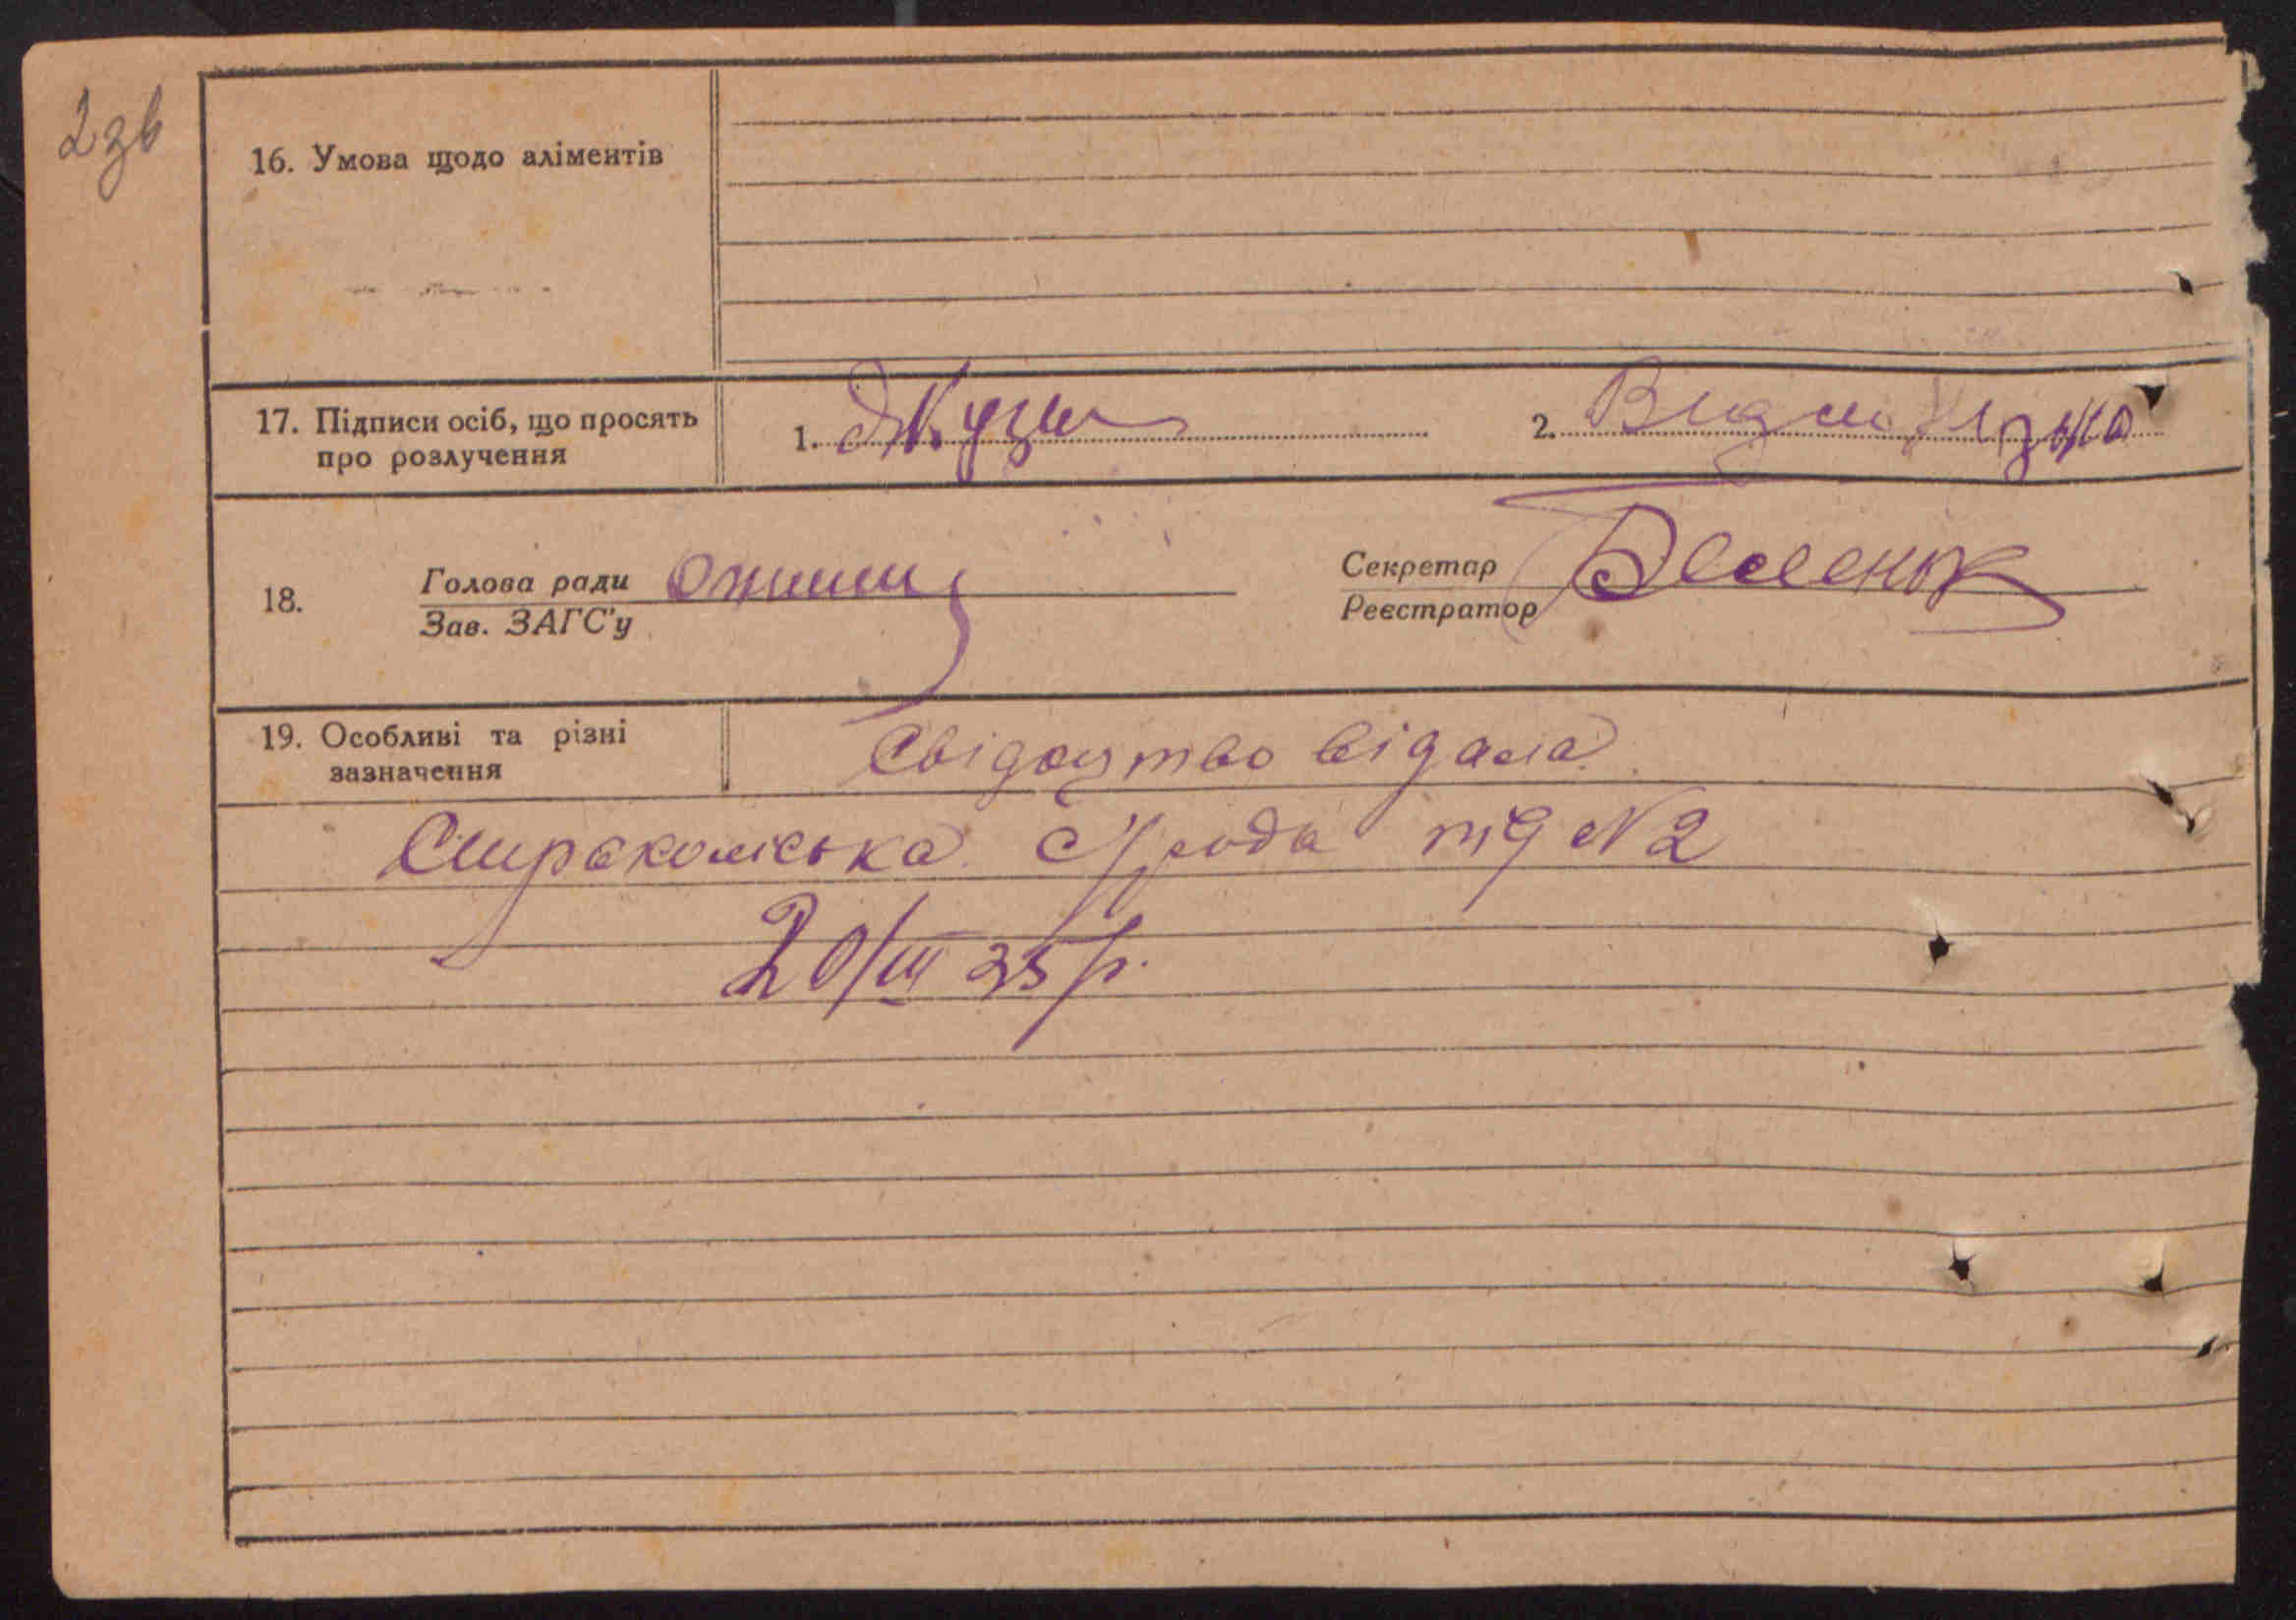 2зв
16. Умова щодо аліментів
17. Підписи осіб, що просять
про розлучення
1.
2.
18.
Голова ради
Зав. ЗАГС'у
Секретар
Реєстратор
19. Особливі та різні
зазначення
Свідоцтво відала
С/рада під №2
20/III 35 р.